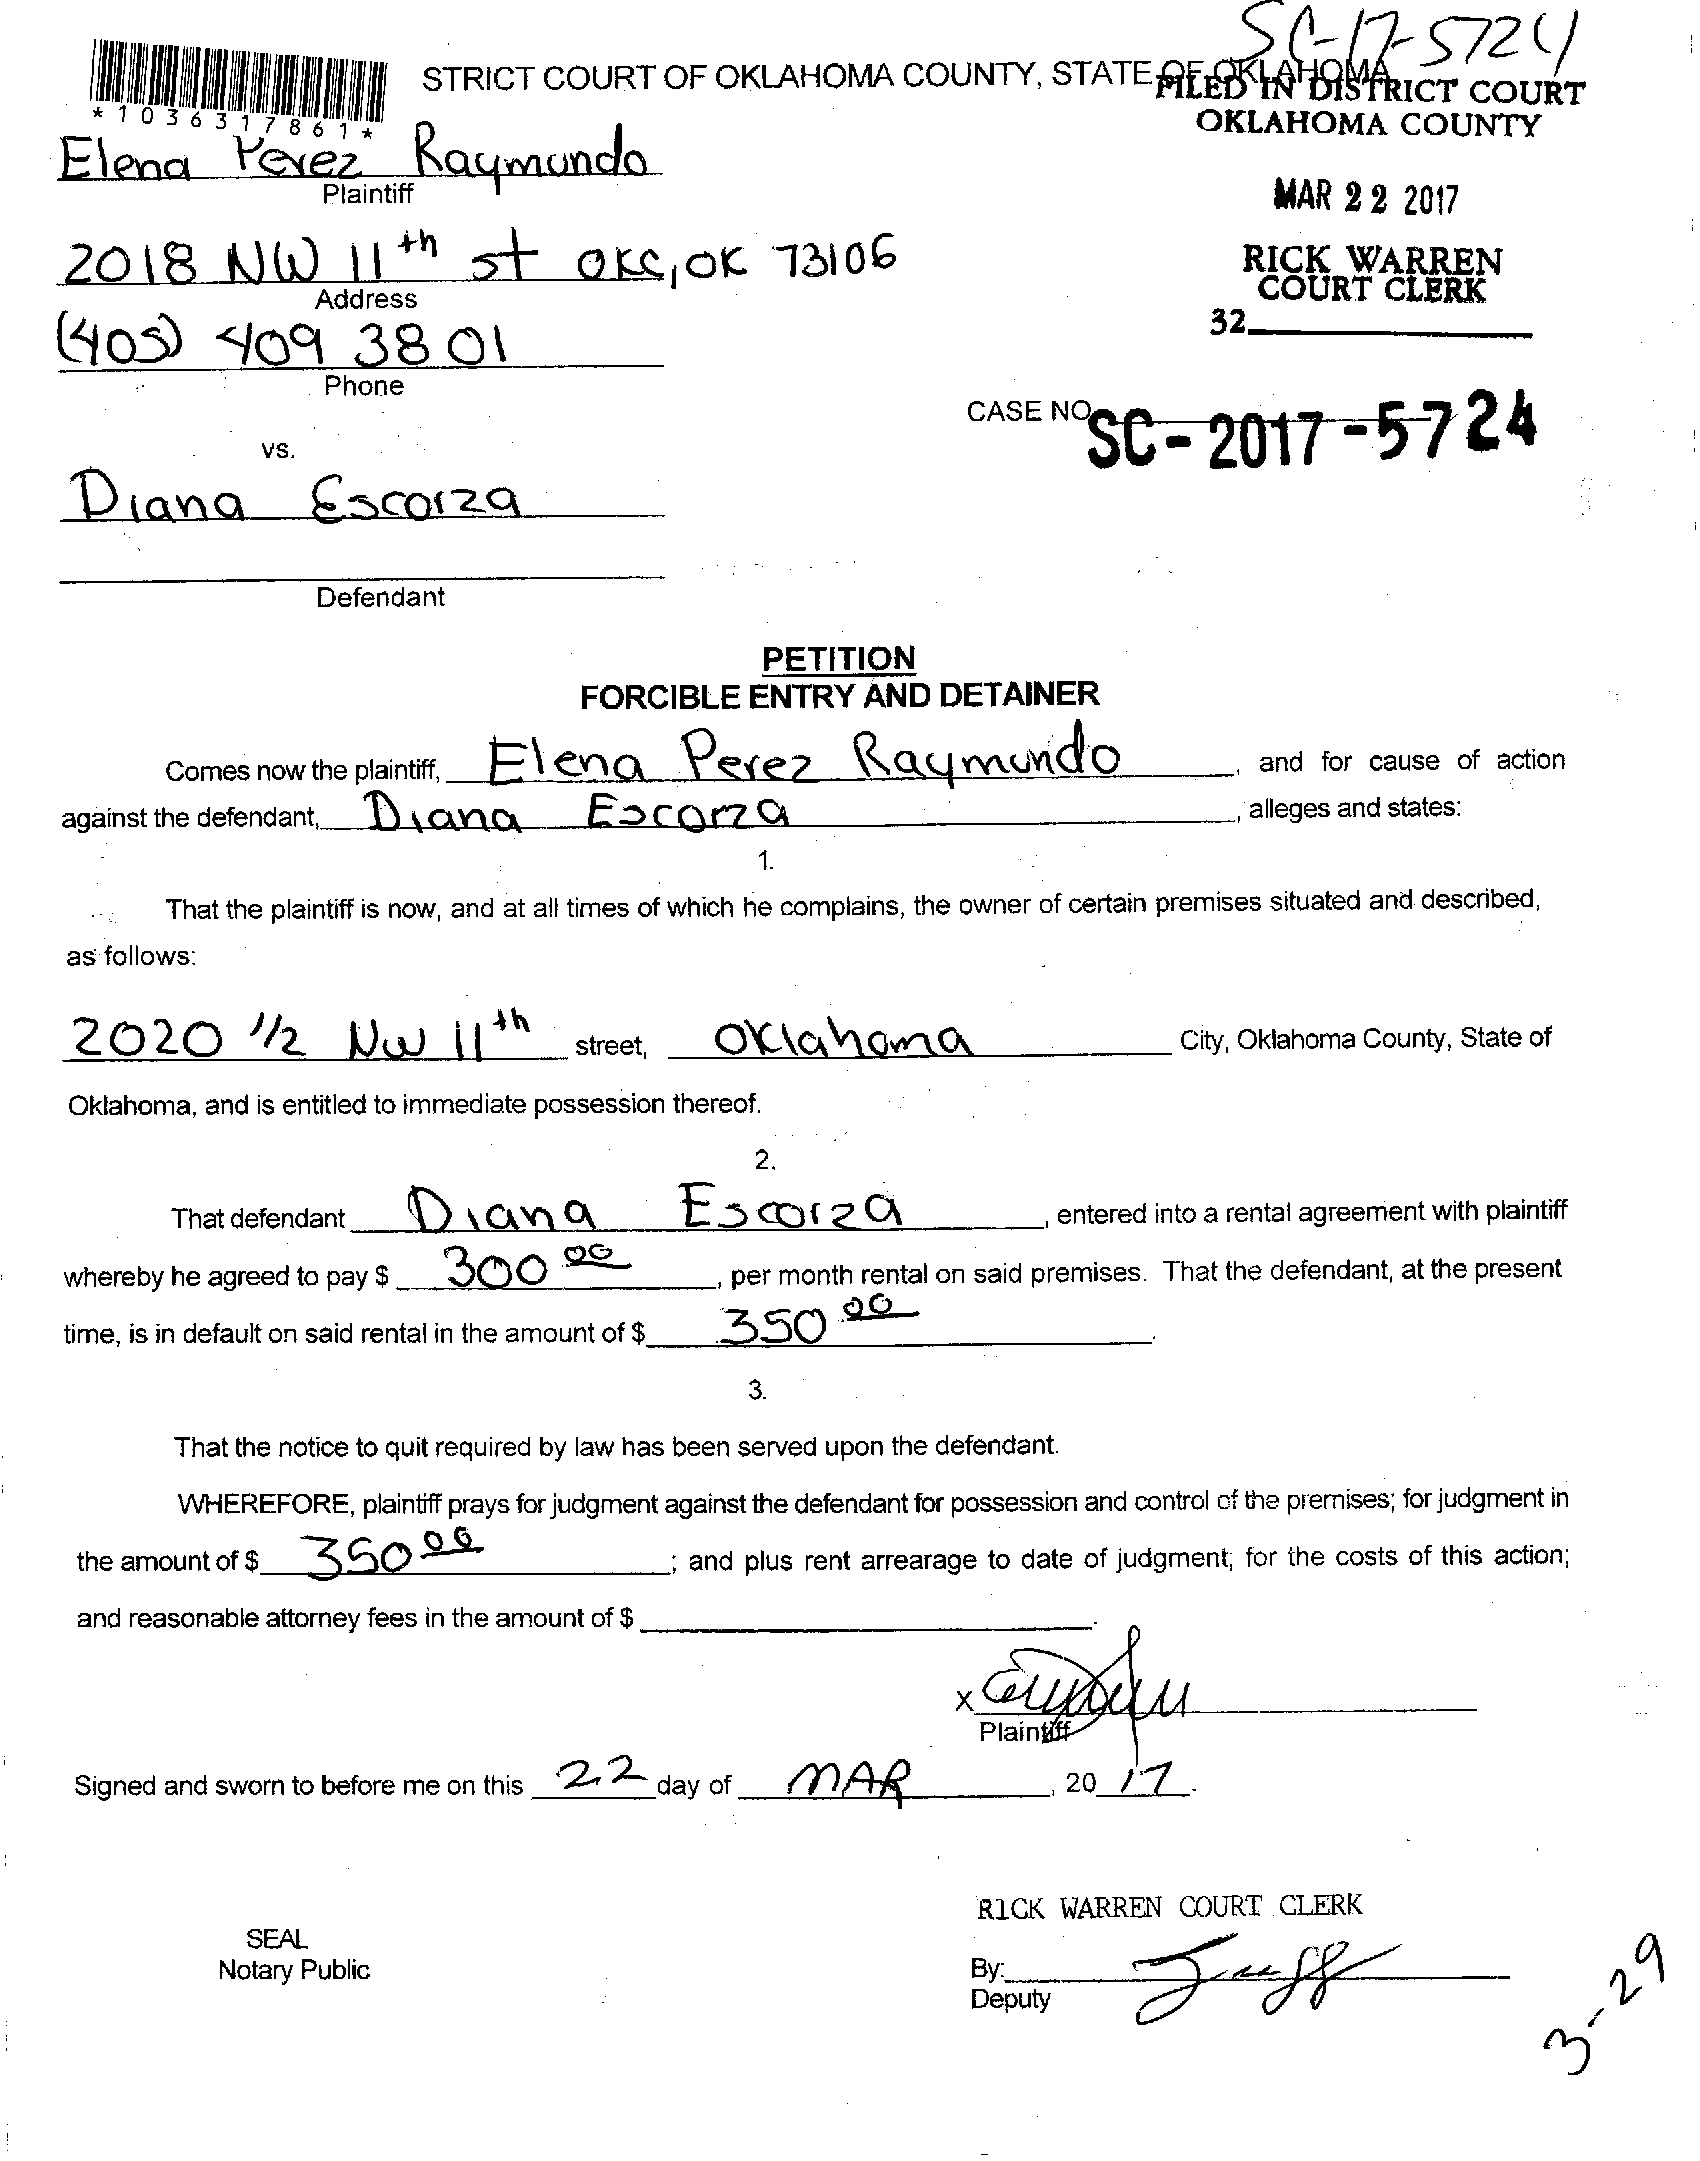 SC-17-5724
STRICT COURT OF OKLAHOMA COUNTY, STATE OF OKLAHOMA
FILED IN DISTRICT COURT
OKLAHOMA COUNTY
*1036317861*
Elena Perez Raymundo
Plaintiff
MAR 22 2017
2018 NW 11th st OKC, OK 73106
Address
RICK WARREN
COURT CLERK
32
(405) 409 3801
Phone
CASE NO. SC-2017-5724
vs.
Diana Escorza
Defendant
PETITION
FORCIBLE ENTRY AND DETAINER
Comes now the plaintiff, Elena Perez Raymundo, and for cause of action
against the defendant, Diana Escorza, alleges and states:
1.
That the plaintiff is now, and at all times of which he complains, the owner of certain premises situated and described,
as follows:
2020 1/2 NW 11th street, Oklahoma City, Oklahoma County, State of
Oklahoma, and is entitled to immediate possession thereof.
2.
That defendant Diana Escorza, entered into a rental agreement with plaintiff
whereby he agreed to pay $ 300 00, per month rental on said premises. That the defendant, at the present
time, is in default on said rental in the amount of $ 350 00.
3.
That the notice to quit required by law has been served upon the defendant.
WHEREFORE, plaintiff prays for judgment against the defendant for possession and control of the premises; for judgment in
the amount of $ 350 00; and plus rent arrearage to date of judgment; for the costs of this action;
and reasonable attorney fees in the amount of $
x
Plaintiff
Signed and sworn to before me on this 22 day of MAR, 20 17.
RICK WARREN COURT CLERK
SEAL
Notary Public
By:
Deputy
3-29